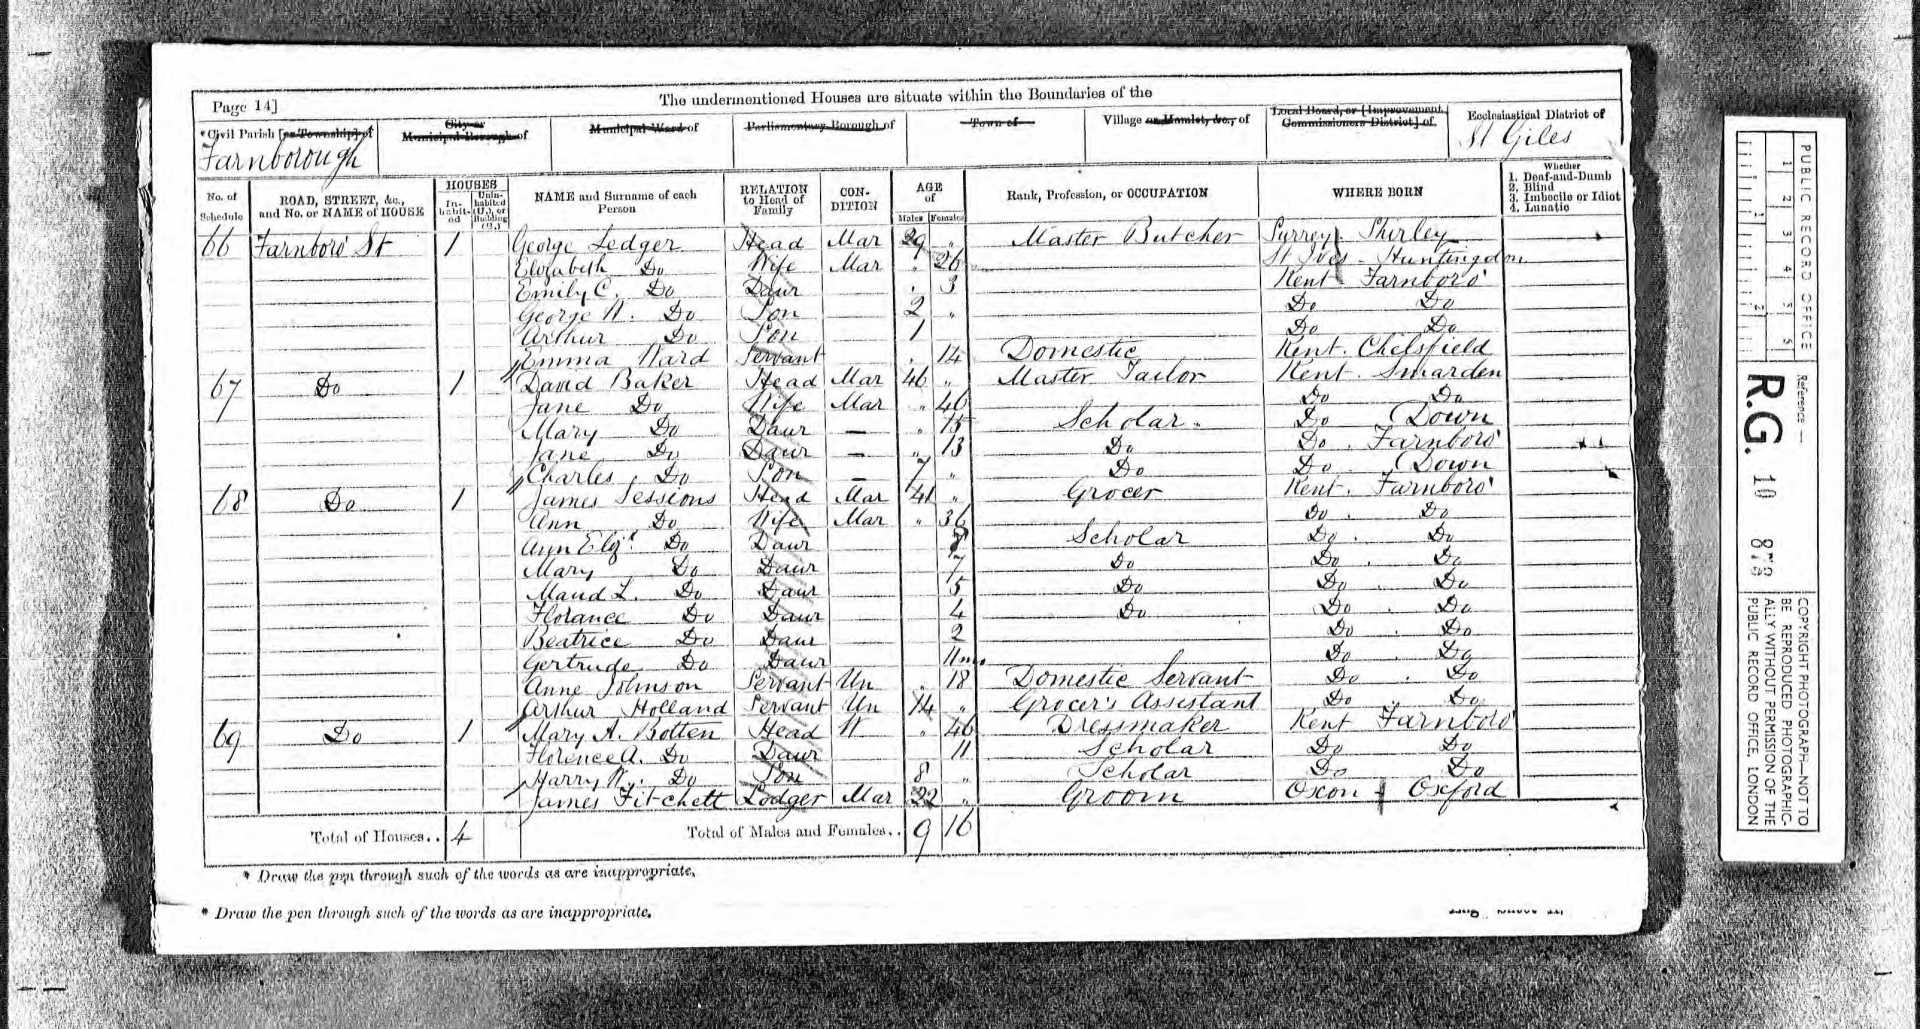 Page 14]
The undermentioned Houses are situate within the Boundaries of the
*Civil Parish [or Township] of
Farnborough
City or
Municipal Borough of
Municipal Ward of
Parliamentary Borough of
Town of
Village or Hamlet, &c., of
Local Board, or [Improvement
Commissioners District] of
Ecclesiastical District of
St Giles
No. of
Schedule
ROAD, STREET, &c.,
and No. or NAME of HOUSE
HOUSES
In-
habit-
ed
Unin-
habited
(U.), or
Building
(B.)
NAME and Surname of each
Person
RELATION
to Head of
Family
CON-
DITION
AGE
of
Males
Females
Rank, Profession, or OCCUPATION
WHERE BORN
Whether
1. Deaf-and-Dumb
2. Blind
3. Imbecile or Idiot
4. Lunatic
66 Farnboro' St 1 George Ledger Head Mar 29 " Master Butcher Surrey Shirley
Elizabeth Do Wife Mar " 26 St Ives - Huntingdon
Emily C. Do Daur " 3 Kent Farnboro'
George Do Son 2 " Do Do
Arthur Do Son 1 Do Do
Emma Ward Servant " 14 Domestic Kent. Chelsfield
67 Do 1 David Baker Head Mar 46 " Master Tailor Kent. Smarden
Jane Do Wife Mar " 46 Do Do
Mary Do Daur — " 15 Scholar. Do Down
Jane Do Daur — " 13 Do Do. Farnboro'
Charles Do Son — 7 " Do Do. Down
68 Do 1 James Sessions Head Mar 41 " Grocer Kent. Farnboro'
Ann Do Wife Mar " 36 Do. Do
Ann Elizt Do Daur Scholar Do. Do
Mary Do Daur 7 Do Do. Do
Maud L. Do Daur 5 Do Do. Do
Florance Do Daur 4 Do Do. Do
Beatrice Do Daur 2 Do. Do
Gertrude Do Daur 11mo Do. Do
Anne Johnson Servant Un " 18 Domestic Servant Do. Do
Arthur Holland Servant Un 14 " Grocer's Assistant Do. Do
69 Do 1 Mary A. Botten Head W " 46 Dressmaker Kent Farnboro'
Florence A. Do Daur 11 Scholar Do Do
Harry W. Do Son 8 " Scholar Do Do
James Fitchett Lodger Mar 22 " Groom Oxon Oxford
Total of Houses.. 4 Total of Males and Females.. 9 16
* Draw the pen through such of the words as are inappropriate.
* Draw the pen through such of the words as are inappropriate.
PUBLIC RECORD OFFICE
1 2 3 4 5 6
1 2
Reference —
R.G. 10
COPYRIGHT PHOTOGRAPH—NOT TO
BE REPRODUCED PHOTOGRAPHIC-
ALLY WITHOUT PERMISSION OF THE
PUBLIC RECORD OFFICE, LONDON